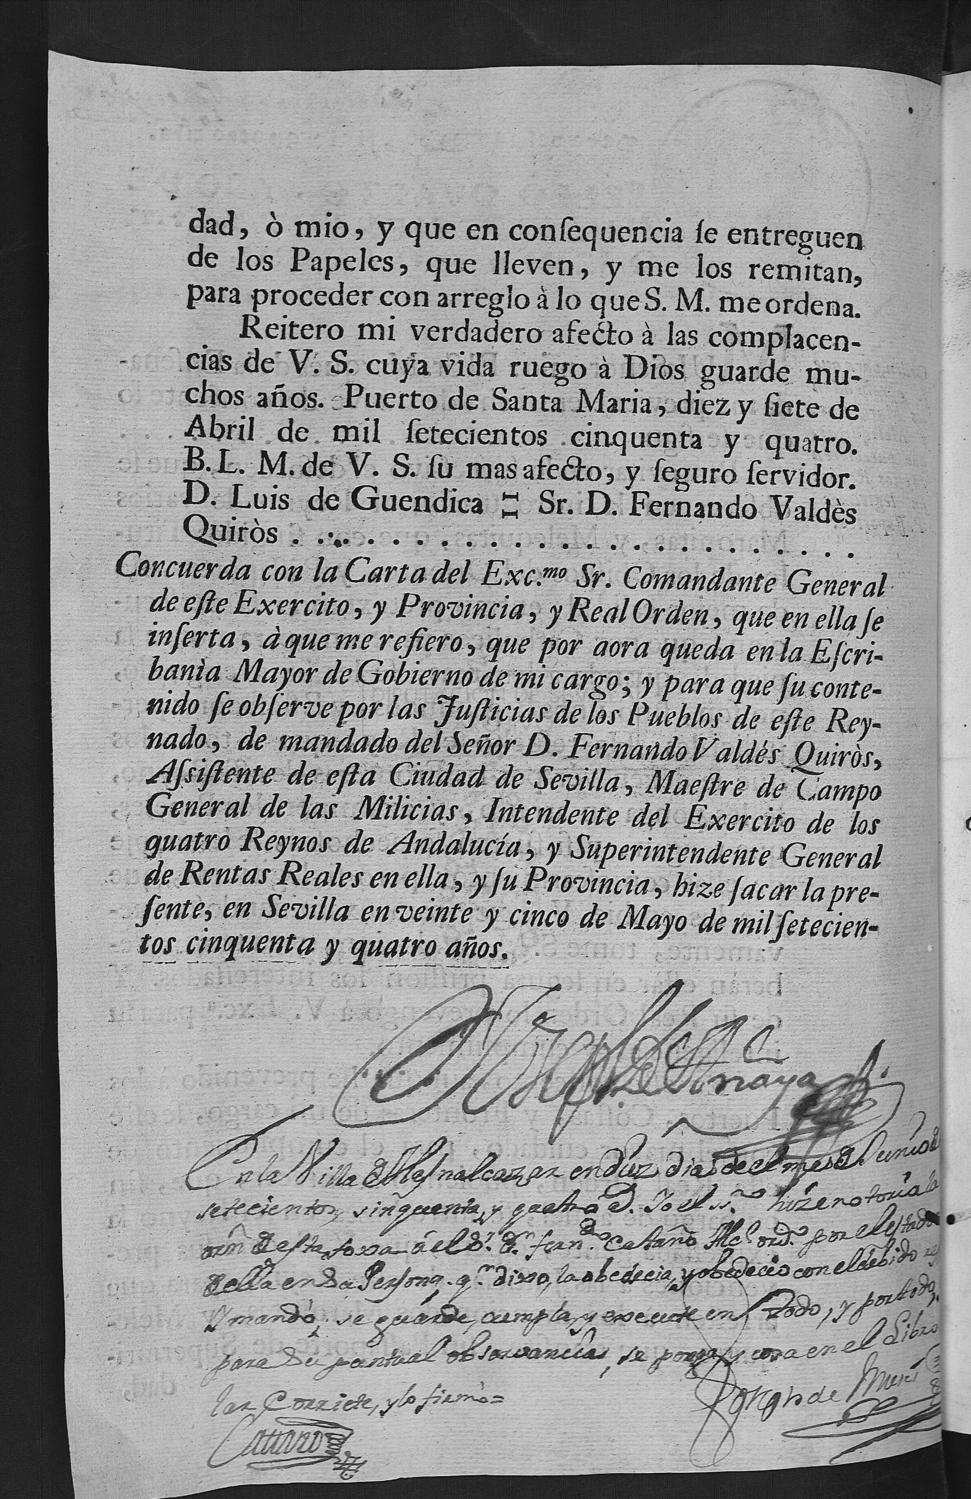 dad, ò mio, y que en conſequencia ſe entreguen
de los Papeles, que lleven, y me los remitan,
para proceder con arreglo à lo que S. M. me ordena.
Reitero mi verdadero afecto à las complacen-
cias de V. S. cuya vida ruego à Dios guarde mu-
chos años. Puerto de Santa Maria, diez y ſiete de
Abril de mil ſetecientos cinquenta y quatro.
B. L. M. de V. S. ſu mas afecto, y ſeguro ſervidor.
D. Luis de Guendica = Sr. D. Fernando Valdès
Quiròs . . . . . . . . . . . . . . . . . . . .
Concuerda con la Carta del Exc.mo Sr. Comandante General
de eſte Exercito, y Provincia, y Real Orden, que en ella ſe
inſerta, à que me refiero, que por aora queda en la Eſcri-
banìa Mayor de Gobierno de mi cargo; y para que ſu conte-
nido ſe obſerve por las Juſticias de los Pueblos de eſte Rey-
nado, de mandado del Señor D. Fernando Valdés Quiròs,
Aſsiſtente de eſta Ciudad de Sevilla, Maeſtre de Campo
General de las Milicias, Intendente del Exercito de los
quatro Reynos de Andalucía, y Superintendente General
de Rentas Reales en ella, y ſu Provincia, hize ſacar la pre-
ſente, en Sevilla en veinte y cinco de Mayo de mil ſetecien-
tos cinquenta y quatro años.
En la Villa de en dias de el mes de Junio de
setecientos sinquenta, y quatro Yo el ss.no hize notoria la
orn de esta foxa á el S.r D.n fern.do Cataño Alc.e ord.o por el estado
della en Su Persona, q.n dixo, la obedecia, y obedecio con el debido
Y mandó, se guarde, cumpla, y execute en todo, y por todo,
para Su puntual observancia, se ponga, y cosa en el Libro
Corriete, y lo firmó =
Cattaño